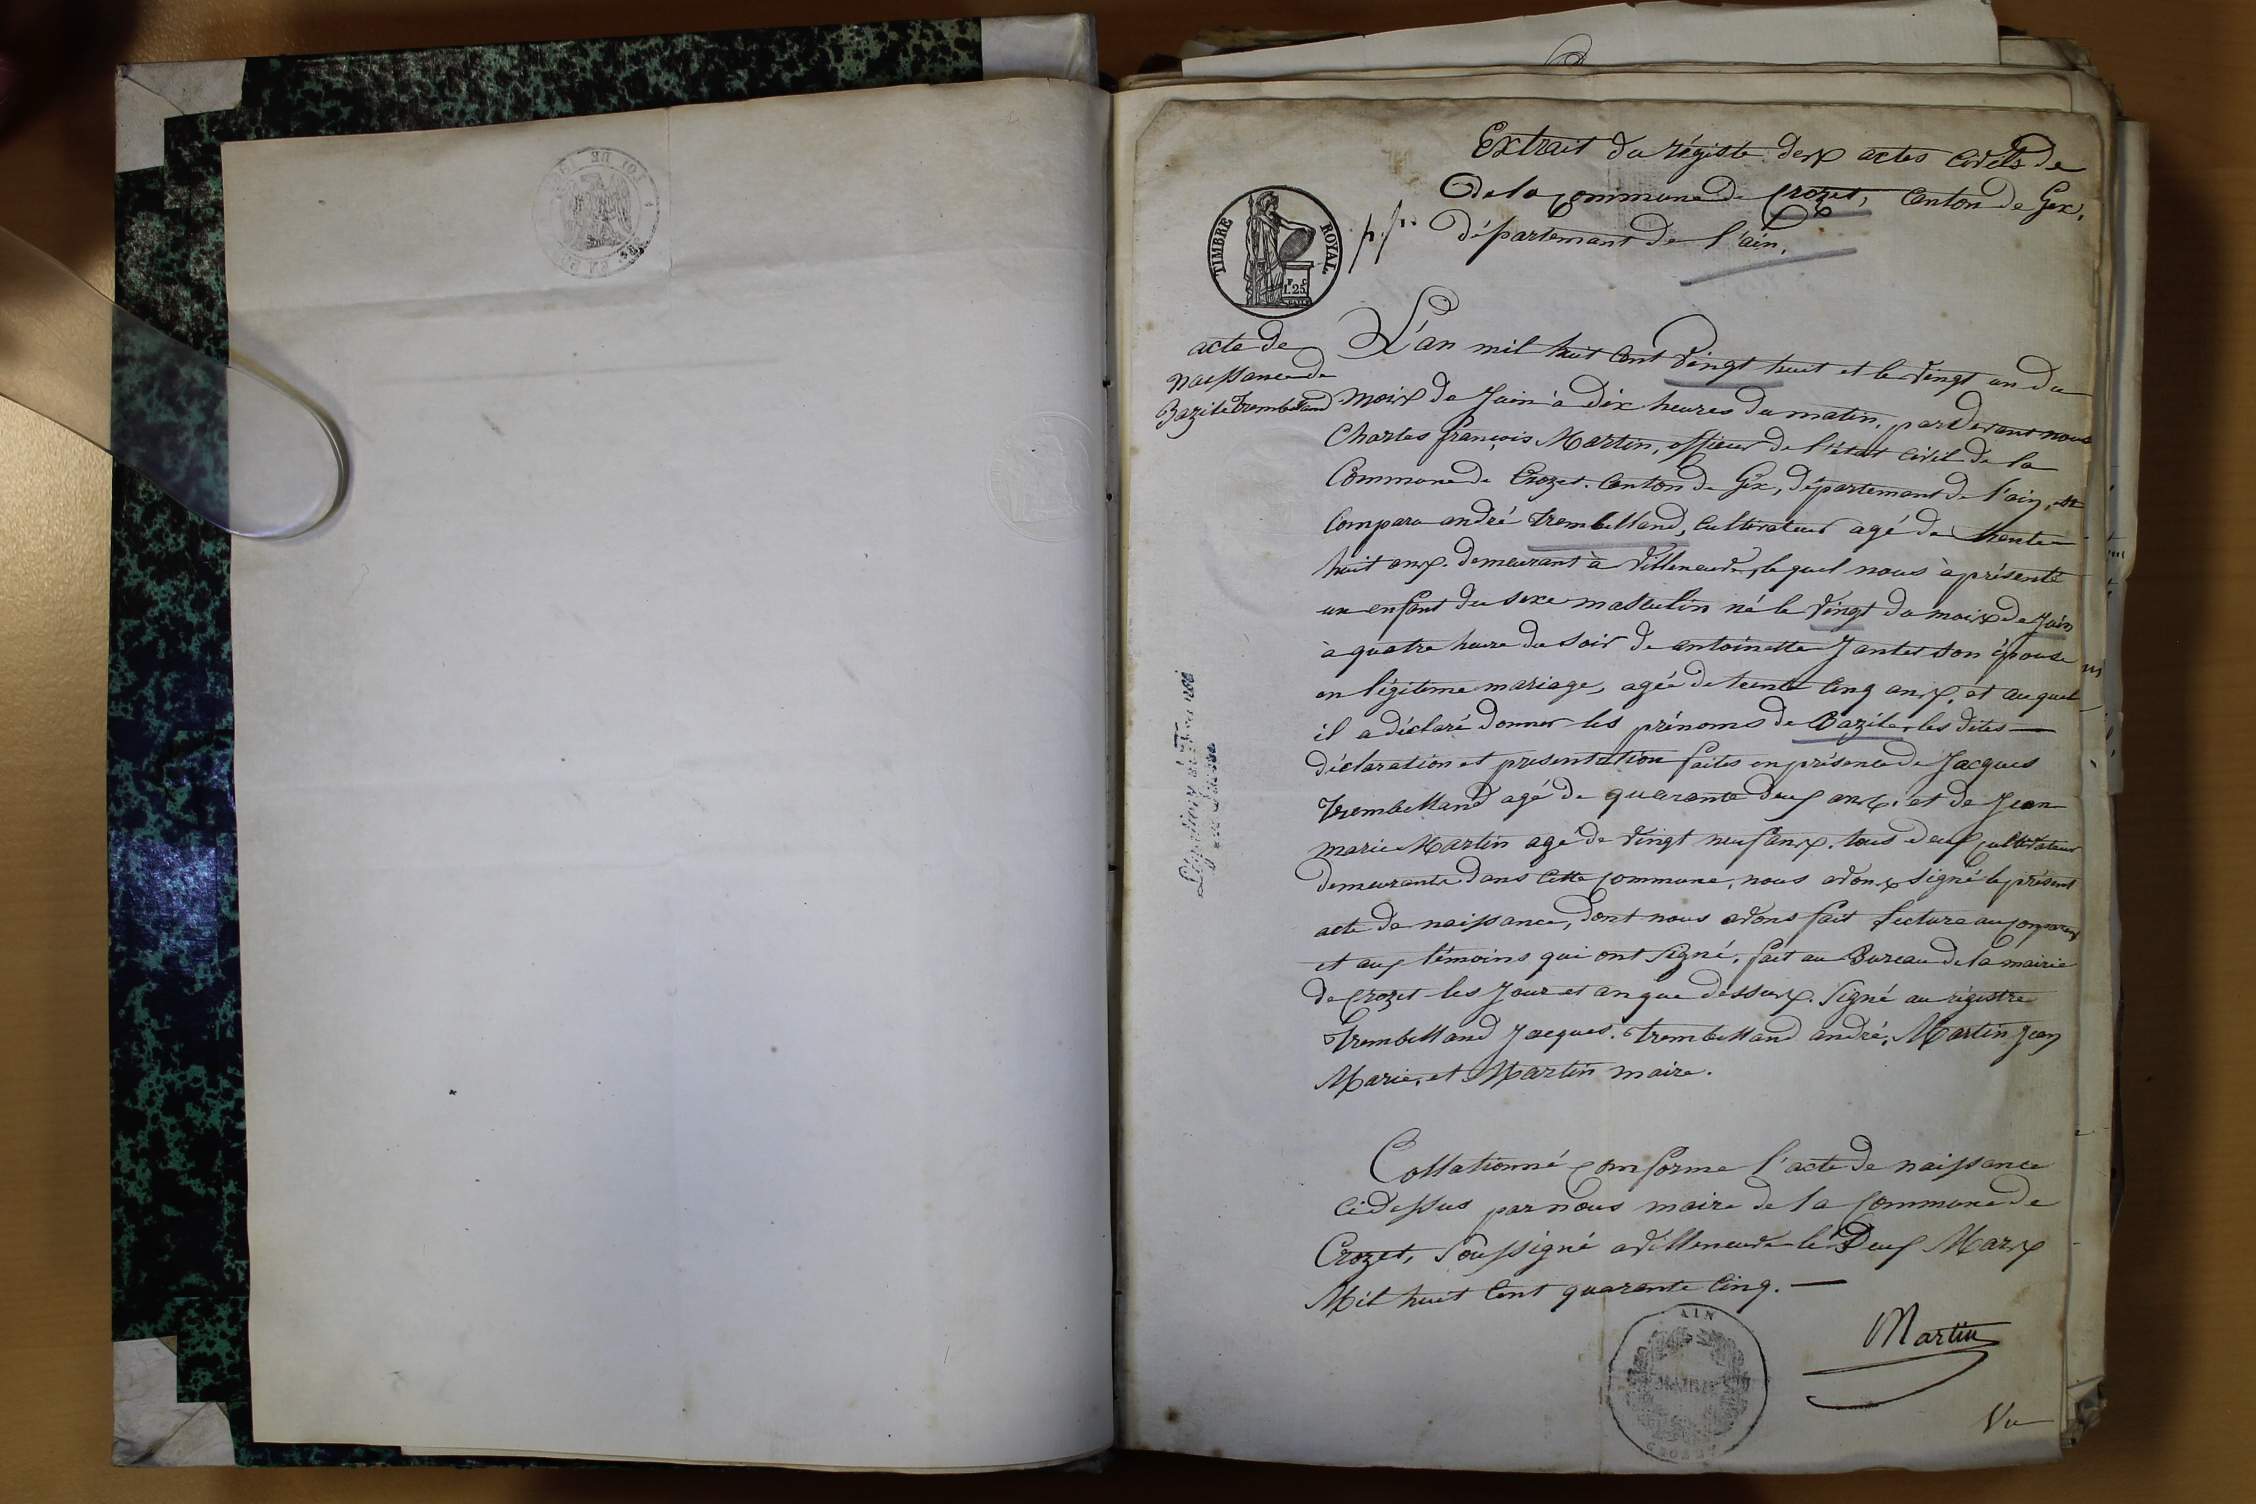 Extrait du régiste des actes civils de
de la commune de Crozet, Canton de Gex,
département de l'ain.
TIMBRE ROYAL
1.25
acte de
naissance de
Bazile Trembelland
L'an mil huit cent vingt huit et le vingt un du
mois de Juin à dix heures du matin, pardevant nous
Charles françois Martin, officier de l'état civil de la
Commune de Crozet. Canton de Gex, département de l'ain, est
comparu andré Trembelland, cultivateur agé de trente
huit ans. demeurant à Villeneuve, lequel nous à présenté
un enfant du sexe masculin né le vingt du mois de Juin
à quatre heure du soir de antoinette Jantet son épouse
en légitime mariage, agée de trente cinq ans, et auquel
il a déclaré donner les prénoms de Bazile, les dites
déclaration et presentation faites en présence de Jacques
Trembelland agé de quarante deux ans, et de Jean
marie Martin agé de vingt neuf ans. tous deux cultivateur
demeurants dans cette commune, nous avons signé le présent
acte de naissance, dont nous avons fait lecture au comparant
et aux témoins qui ont signé, fait au Bureau de la mairie
de Crozet les Jour et an que dessus. Signé au régistre
Trembelland Jacques. Trembelland andré, Martin Jean
Marie, et Martin maire.
Collationné conforme l'acte de naissance
ci dessus par nous maire de la commune de
Crozet, Soussigné à Villeneuve le Deux Mars
Mil huit Cent quarante Cinq.
Martin
AIN
MAIRIE
CROZET
Vu